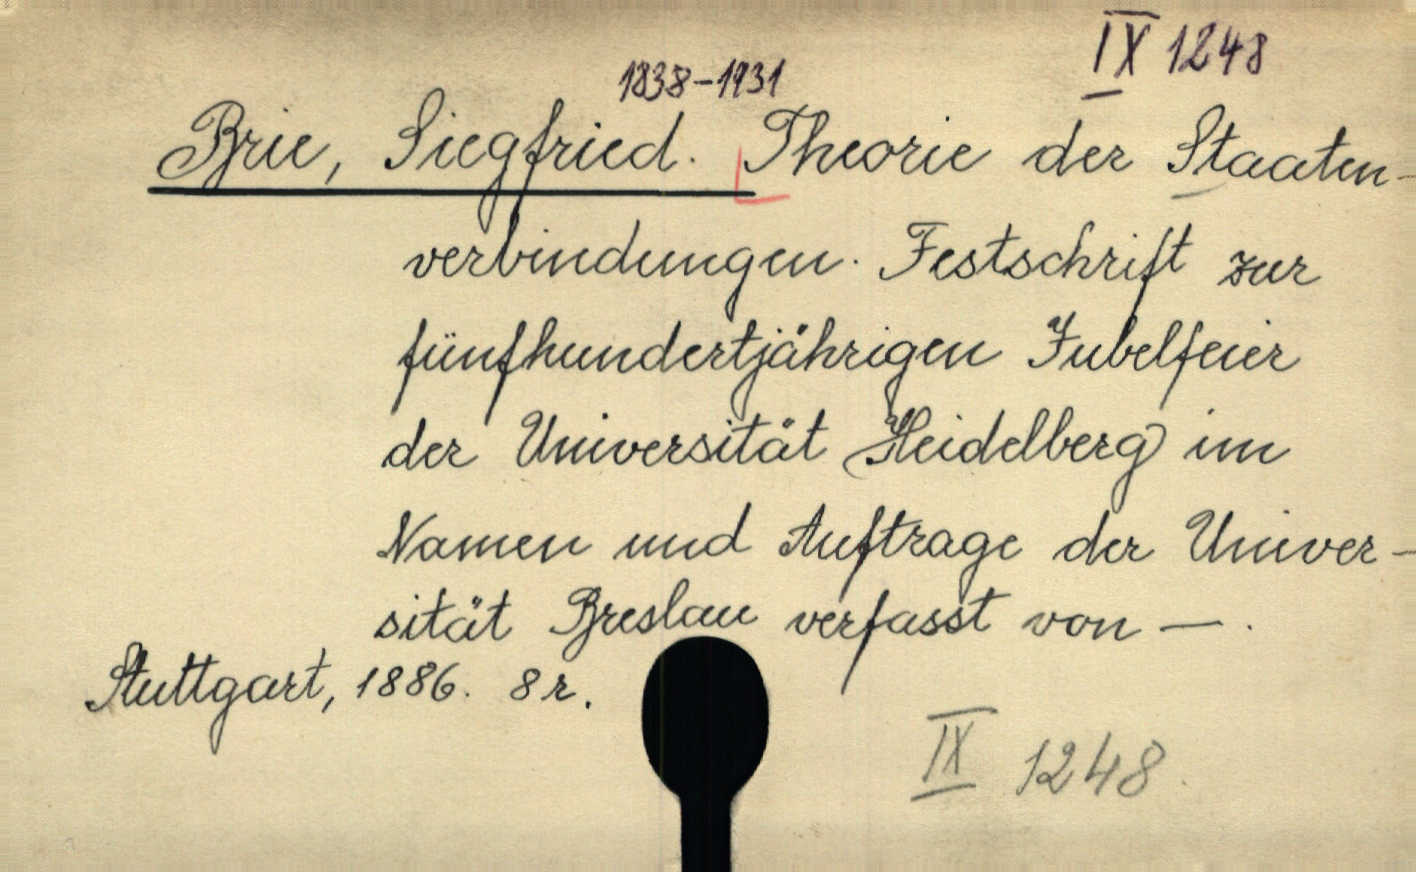 IX 1248
1838-1931
Brie, Siegfried. Theorie der Staaten-
verbindungen. Festschrift zur
fünfhundertjährigen Jubelfeier
der Universität Heidelberg im
Namen und Auftrage der Univer-
sität Breslau verfasst von —.
Stuttgart, 1886. 8r.
IX 1248